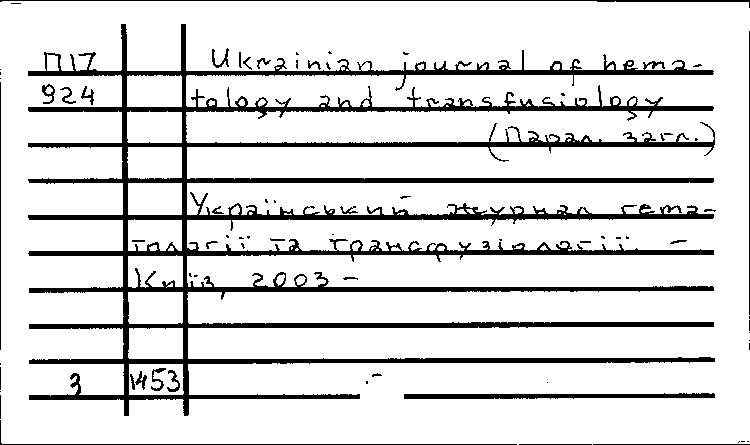 П17 Ukrainian journal of hema-
924 tology and transfusiology
(Парал. загл.)
Український журнал гема-
тології та трансфузіології. –
Київ, 2003 –
3 453